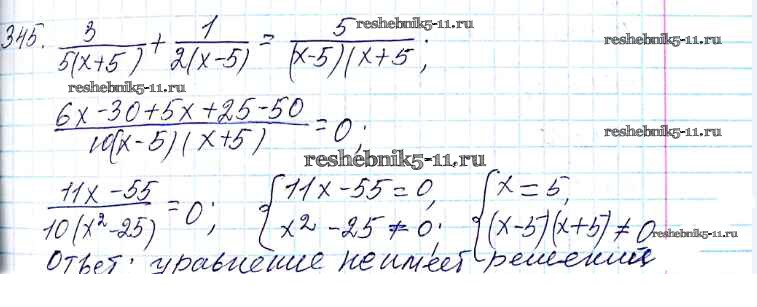 reshebnik5-11.ru
345. 3/(5(x+5)) + 1/(2(x-5)) = 5/((x-5)(x+5;
reshebnik5-11.ru
reshebnik5-11.ru
(6x-30+5x+25-50)/(10(x-5)(x+5)) = 0;
reshebnik5-11.ru
reshebnik5-11.ru
(11x-55)/(10(x²-25)) = 0; { 11x-55=0, x²-25≠0; { x=5, (x-5)(x+5)≠0
reshebnik5-11.ru
Ответ: уравнение не имеет решений